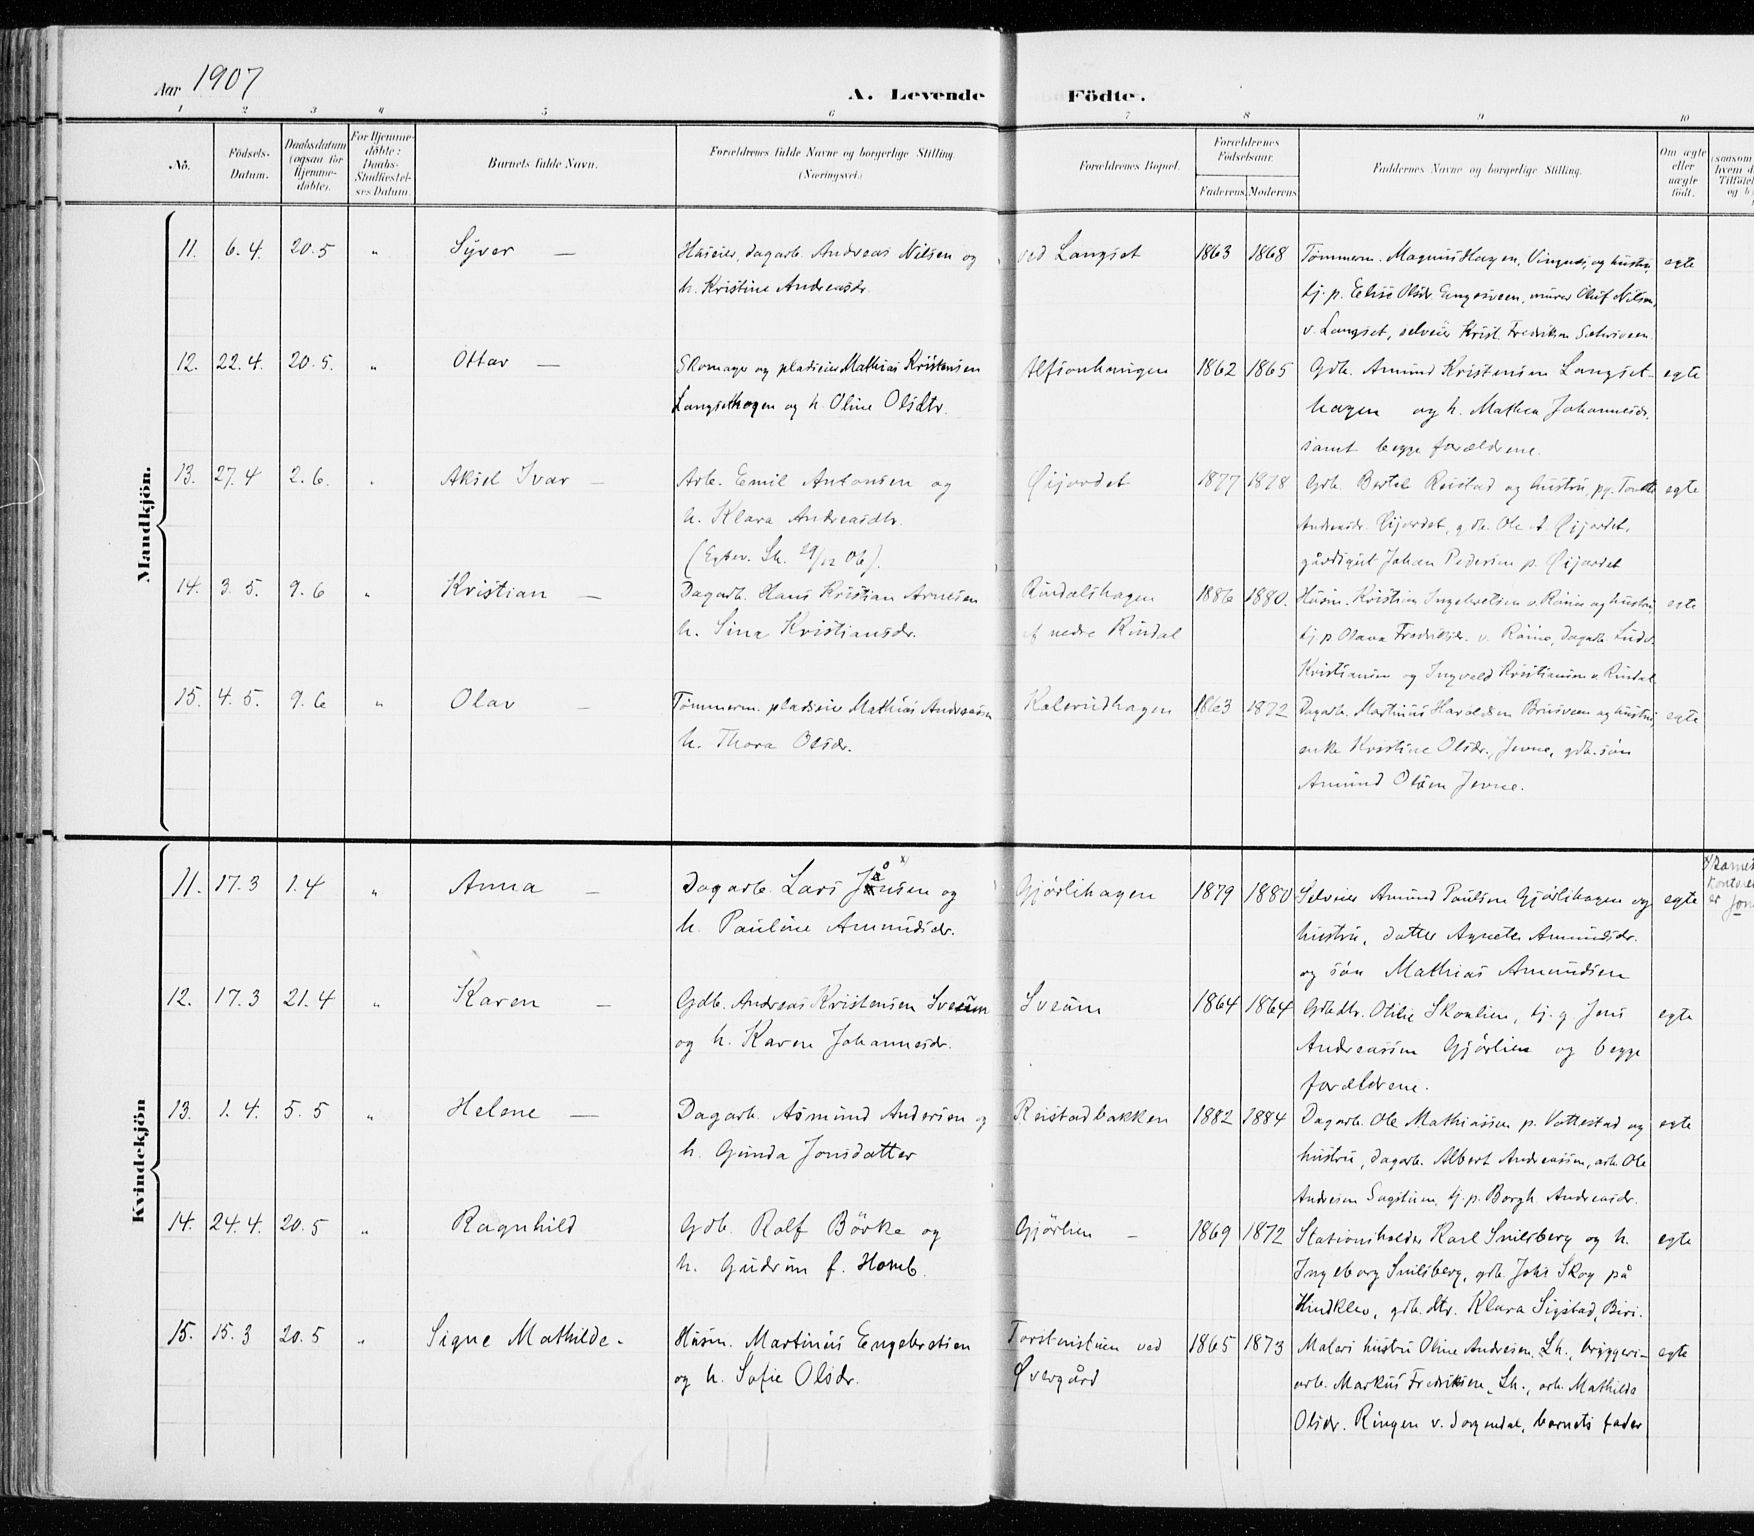 Aar 1907
A. Levende Födte.
1 2 3 4 5 6 7 8 9 10
No. Födsels-Datum. Daabsdatum (ogsaa for Hjemme-døbte). For Hjemme-döbte: Daabs-Stadfæstel-ses Datum. Barnets fulde Navn. Forældrenes fulde Navne og borgerlige Stilling (Næringsvei.) Forældrenes Bopæl. Forældrenes Födselsaar. Faderens Moderens Faddernes Navne og borgerlige Stilling. Om ægte eller uægte födt.
Mandkjön.
11. 6.4. 20.5 „ Syver — Huseier, dagarb. Andreas Nilsen og ved Langset 1863 1868 Tømmerm. Magnus Hagen, Vingnes, og hustru, egte
h. Kristine Andreasdr. tj. p. Elise Olsdr. Engesveen, murer Oluf Nilsen,
v. Langset, selveier Krist. Fredriksen
12. 22.4. 20.5. „ Ottar — Skomager og pladseier Mathias Kristensen 1862 1865 Gdb. Amund Kristensen Langset- egte
Langsethagen og h. Oline Olsdtr. hagen og h. Mathea Johannesdr.
samt begge forældrene.
13. 27.4 2.6. Aksel Ivar — Arb. Emil Antonsen og Øijordet 1877 1878 Gdb. Bertel Reistad og hustru, pg. egte
h. Klara Andreasdtr. Andreasdr. Øijordet, gdb. Ole A Øijordet,
(Egtev. Lh. 29/12 06). gårdsgut Johan Pedersen p. Øijordet
14. 3.5. 9.6 „ Kristian — Dagarb. Hans Kristian Arnesen Rindalshagen 1886 1880. Husm. Kristian Ingebretsen v. og hustru, egte
h. Sina Kristiansdr. af nedre Rindal tj. p. Olava Fredriksdr. v. dagarb.
Kristiansen og Ingvald Kristiansen v. Rindal
15. 4.5. 9.6 „ Olav — Tømmerm. pladseier Mathias Andreassen Kalerudhagen 1863 1872 Dagarb. Martinus Haraldsen Brusveen og hustru, egte
h. Thora Olsdr. enke Kristine Olsdr., Jevne, gdb. søn
Amund Olsen Jevne.
Kvindekjön
11. 17.3 1.4 „ Anna — Dagarb. Lars Jånsen x) og Gjørlihagen 1879 1880 Selveier Amund Paulsen Gjørlihagen og egte
h. Pauline Amundsdr. hustru, datter Agnete Amundsdr.
og søn Mathias Amundsen
12. 17.3 21.4 „ Karen — Gdb. Andreas Kristensen Sveum Sveum 1864 1864 Gdbdtr. Otilie Skonlien, tj. g. Jens egte
og h. Karen Johannesdr. Andreassen Gjørlien og begge
forældrene.
13. 1.4. 5.5 „ Helene — Dagarb. Asmund Andersen og Reistadbakken 1882 1884 Dagarb. Ole Mathiassen p. Vottestad og egte
h. Gunda Jonsdatter hustru, dagarb. Albert Andreassen, arb. Ole
Andresen Sagstuen, tj. p. Borgh. Andreasdr.
14. 24.4. 20.5 „ Ragnhild Gdb. Rolf Börke og Gjørlien — 1869 1872 Stationsholder Karl Snilsberg og h. egte
h. Gudrun f. Homb. Ingeborg Snilsberg, gdb. Johs Skog på
Hindklev, gdb. dtr. Klara Sigstad, Biri.
15. 15.3 20.5 „ Signe Mathilde. Husm. Martinus Engebretsen Torstenstuen ved 1865 1873 Malers hustru Oline Andresen Lh., bryggeri- egte
og h. Sofie Olsdr. Øvergård arb. Markus Fredriksen, Lh., arb. Mathilde
Olsdr. Ringen v. Jorgendal, barnets fader